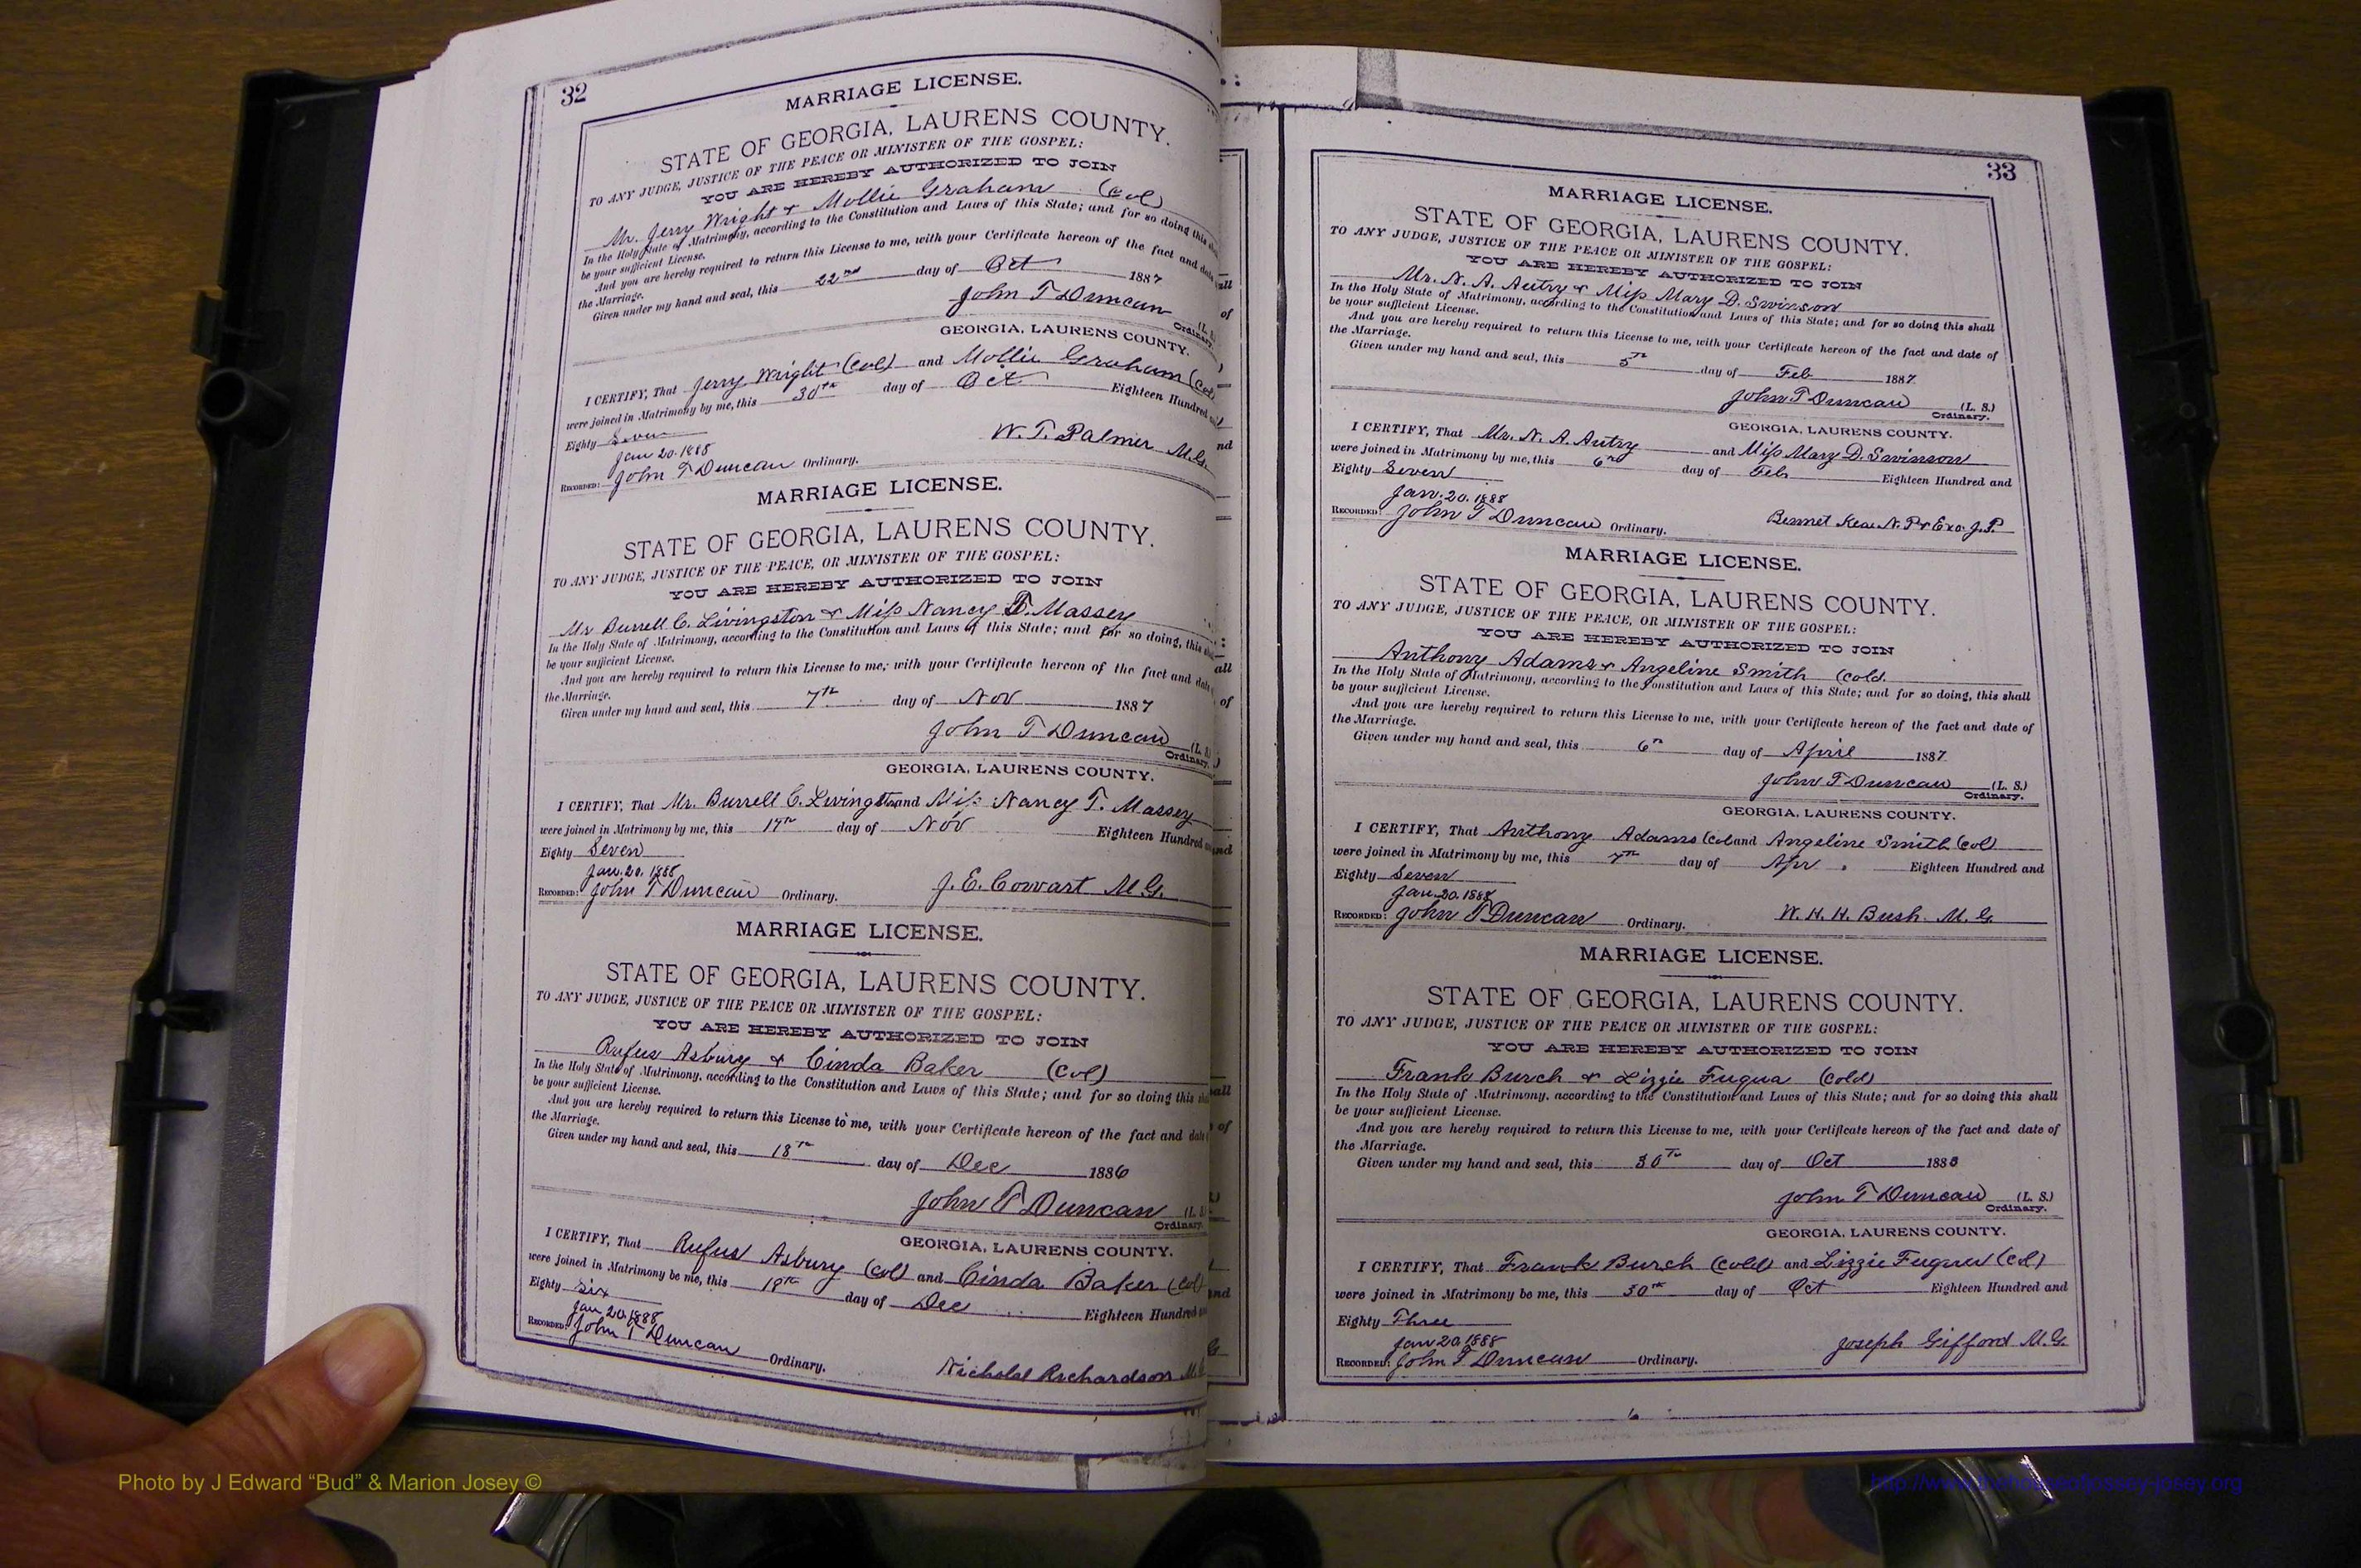 32
MARRIAGE LICENSE.
STATE OF GEORGIA, LAURENS COUNTY.
TO ANY JUDGE, JUSTICE OF THE PEACE OR MINISTER OF THE GOSPEL:
YOU ARE HEREBY AUTHORIZED TO JOIN
Mr. Jerry Wright & Mollie Graham (Col)
In the Holy State of Matrimony, according to the Constitution and Laws of this State; and for so doing this
be your sufficient License.
And you are hereby required to return this License to me, with your Certificate hereon of the fact and date
the Marriage.
Given under my hand and seal, this 22nd day of Oct 1887
John T Duncan (L.
Ordinary.
GEORGIA, LAURENS COUNTY.
I CERTIFY, That Jerry Wright (Col) and Mollie Graham (Col
were joined in Matrimony by me, this 30th day of Oct Eighteen Hundred
Eighty Seven
Jan 20. 1888
RECORDED: John T Duncan Ordinary. W. T. Palmer M.G.
MARRIAGE LICENSE.
STATE OF GEORGIA, LAURENS COUNTY.
TO ANY JUDGE, JUSTICE OF THE PEACE, OR MINISTER OF THE GOSPEL:
YOU ARE HEREBY AUTHORIZED TO JOIN
Mr Burrell C. Livingston & Miss Nancy T. Massey
In the Holy State of Matrimony, according to the Constitution and Laws of this State; and for so doing, this
be your sufficient License.
And you are hereby required to return this License to me, with your Certificate hereon of the fact and date
the Marriage.
Given under my hand and seal, this 7th day of Nov 1887
John T Duncan (L. S.)
Ordinary.
GEORGIA, LAURENS COUNTY.
I CERTIFY, That Mr. Burrell C. Livingston and Miss Nancy T. Massey
were joined in Matrimony by me, this 17th day of Nov Eighteen Hundred
Eighty Seven
Jan. 20. 1888
RECORDED: John T Duncan Ordinary. J. E. Cowart M.G.
MARRIAGE LICENSE.
STATE OF GEORGIA, LAURENS COUNTY.
TO ANY JUDGE, JUSTICE OF THE PEACE OR MINISTER OF THE GOSPEL:
YOU ARE HEREBY AUTHORIZED TO JOIN
Rufus Asbury & Cinda Baker (Col)
In the Holy State of Matrimony, according to the Constitution and Laws of this State; and for so doing this
be your sufficient License.
And you are hereby required to return this License to me, with your Certificate hereon of the fact and date
the Marriage.
Given under my hand and seal, this 18th day of Dec 1886
John T Duncan (L. S
Ordinary.
GEORGIA, LAURENS COUNTY.
I CERTIFY, That Rufus Asbury (Col) and Cinda Baker (Col)
were joined in Matrimony be me, this 18th day of Dec Eighteen Hundred
Eighty Six
Jan 20. 1888
RECORDED: John T Duncan Ordinary.
Nicholas Richardson M.G
33
MARRIAGE LICENSE.
STATE OF GEORGIA, LAURENS COUNTY.
TO ANY JUDGE, JUSTICE OF THE PEACE OR MINISTER OF THE GOSPEL:
YOU ARE HEREBY AUTHORIZED TO JOIN
Mr. N. A. Autry & Miss Mary D. Swinson
In the Holy State of Matrimony, according to the Constitution and Laws of this State; and for so doing this shall
be your sufficient License.
And you are hereby required to return this License to me, with your Certificate hereon of the fact and date of
the Marriage.
Given under my hand and seal, this 5th day of Feb 1887
John T Duncan (L. S.)
Ordinary.
GEORGIA, LAURENS COUNTY.
I CERTIFY, That Mr. N. A. Autry and Miss Mary D. Swinson
were joined in Matrimony by me, this 6 day of Feb Eighteen Hundred and
Eighty Seven
Jan. 20. 1888
RECORDED: John T Duncan Ordinary. N. P & Exo J.P.
MARRIAGE LICENSE.
STATE OF GEORGIA, LAURENS COUNTY.
TO ANY JUDGE, JUSTICE OF THE PEACE, OR MINISTER OF THE GOSPEL:
YOU ARE HEREBY AUTHORIZED TO JOIN
Anthony Adams & Angeline Smith (Cold.
In the Holy State of Matrimony, according to the Constitution and Laws of this State; and for so doing, this shall
be your sufficient License.
And you are hereby required to return this License to me, with your Certificate hereon of the fact and date of
the Marriage.
Given under my hand and seal, this 6th day of April 1887
John T Duncan (L. S.)
Ordinary.
GEORGIA, LAURENS COUNTY.
I CERTIFY, That Anthony Adams (Col and Angeline Smith (Col)
were joined in Matrimony by me, this 7th day of Apr Eighteen Hundred and
Eighty Seven
Jan. 20. 1888
RECORDED: John T Duncan Ordinary. W. H. H. Bush. M. G.
MARRIAGE LICENSE.
STATE OF GEORGIA, LAURENS COUNTY.
TO ANY JUDGE, JUSTICE OF THE PEACE OR MINISTER OF THE GOSPEL:
YOU ARE HEREBY AUTHORIZED TO JOIN
Frank Burch & Lizzie Fuqua (Cold)
In the Holy State of Matrimony, according to the Constitution and Laws of this State; and for so doing this shall
be your sufficient License.
And you are hereby required to return this License to me, with your Certificate hereon of the fact and date of
the Marriage.
Given under my hand and seal, this 30th day of Oct 1883
John T Duncan (L. S.)
Ordinary.
GEORGIA, LAURENS COUNTY.
I CERTIFY, That Frank Burch (Cold) and Lizzie (Col)
were joined in Matrimony be me, this 30th day of Oct Eighteen Hundred and
Eighty Three
Jan 20. 1888
RECORDED: John T Duncan Ordinary. Joseph Gifford M.G.
Photo by J Edward “Bud” & Marion Josey ©
http://www.thehouseofjossey-josey.org